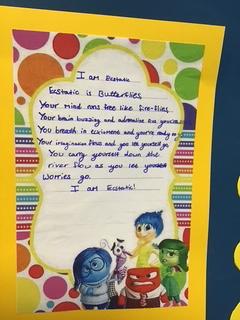 I am Ecstatic
Ecstatic is Butterflies
Your mind runs free like fire-flies
Your brain buzzing and adrenaline
You breath in excitment and you're ready
Your imagination flows and you let yourself go.
You carry yourself down the
river flow as you let yourself
worries go.
I am Ecstatic!